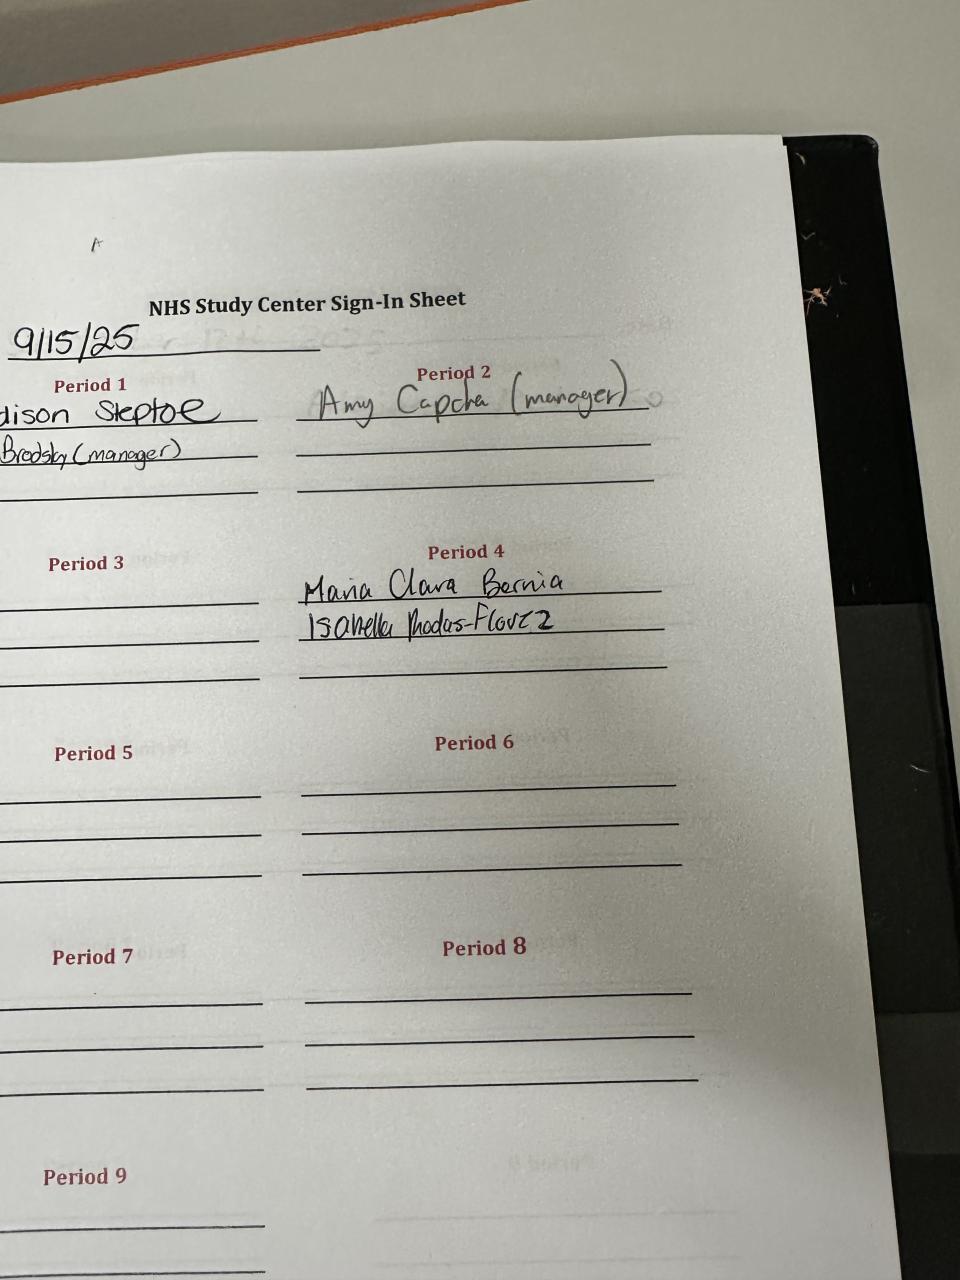 NHS Study Center Sign-In Sheet
9/15/25
Period 1
dison Steptoe
Brodsky (manager)
Period 2
Amy Capcha (manager)
Period 3
Period 4
Maria Clara Bernia
Isabella Rhodas-Florez
Period 5
Period 6
Period 7
Period 8
Period 9